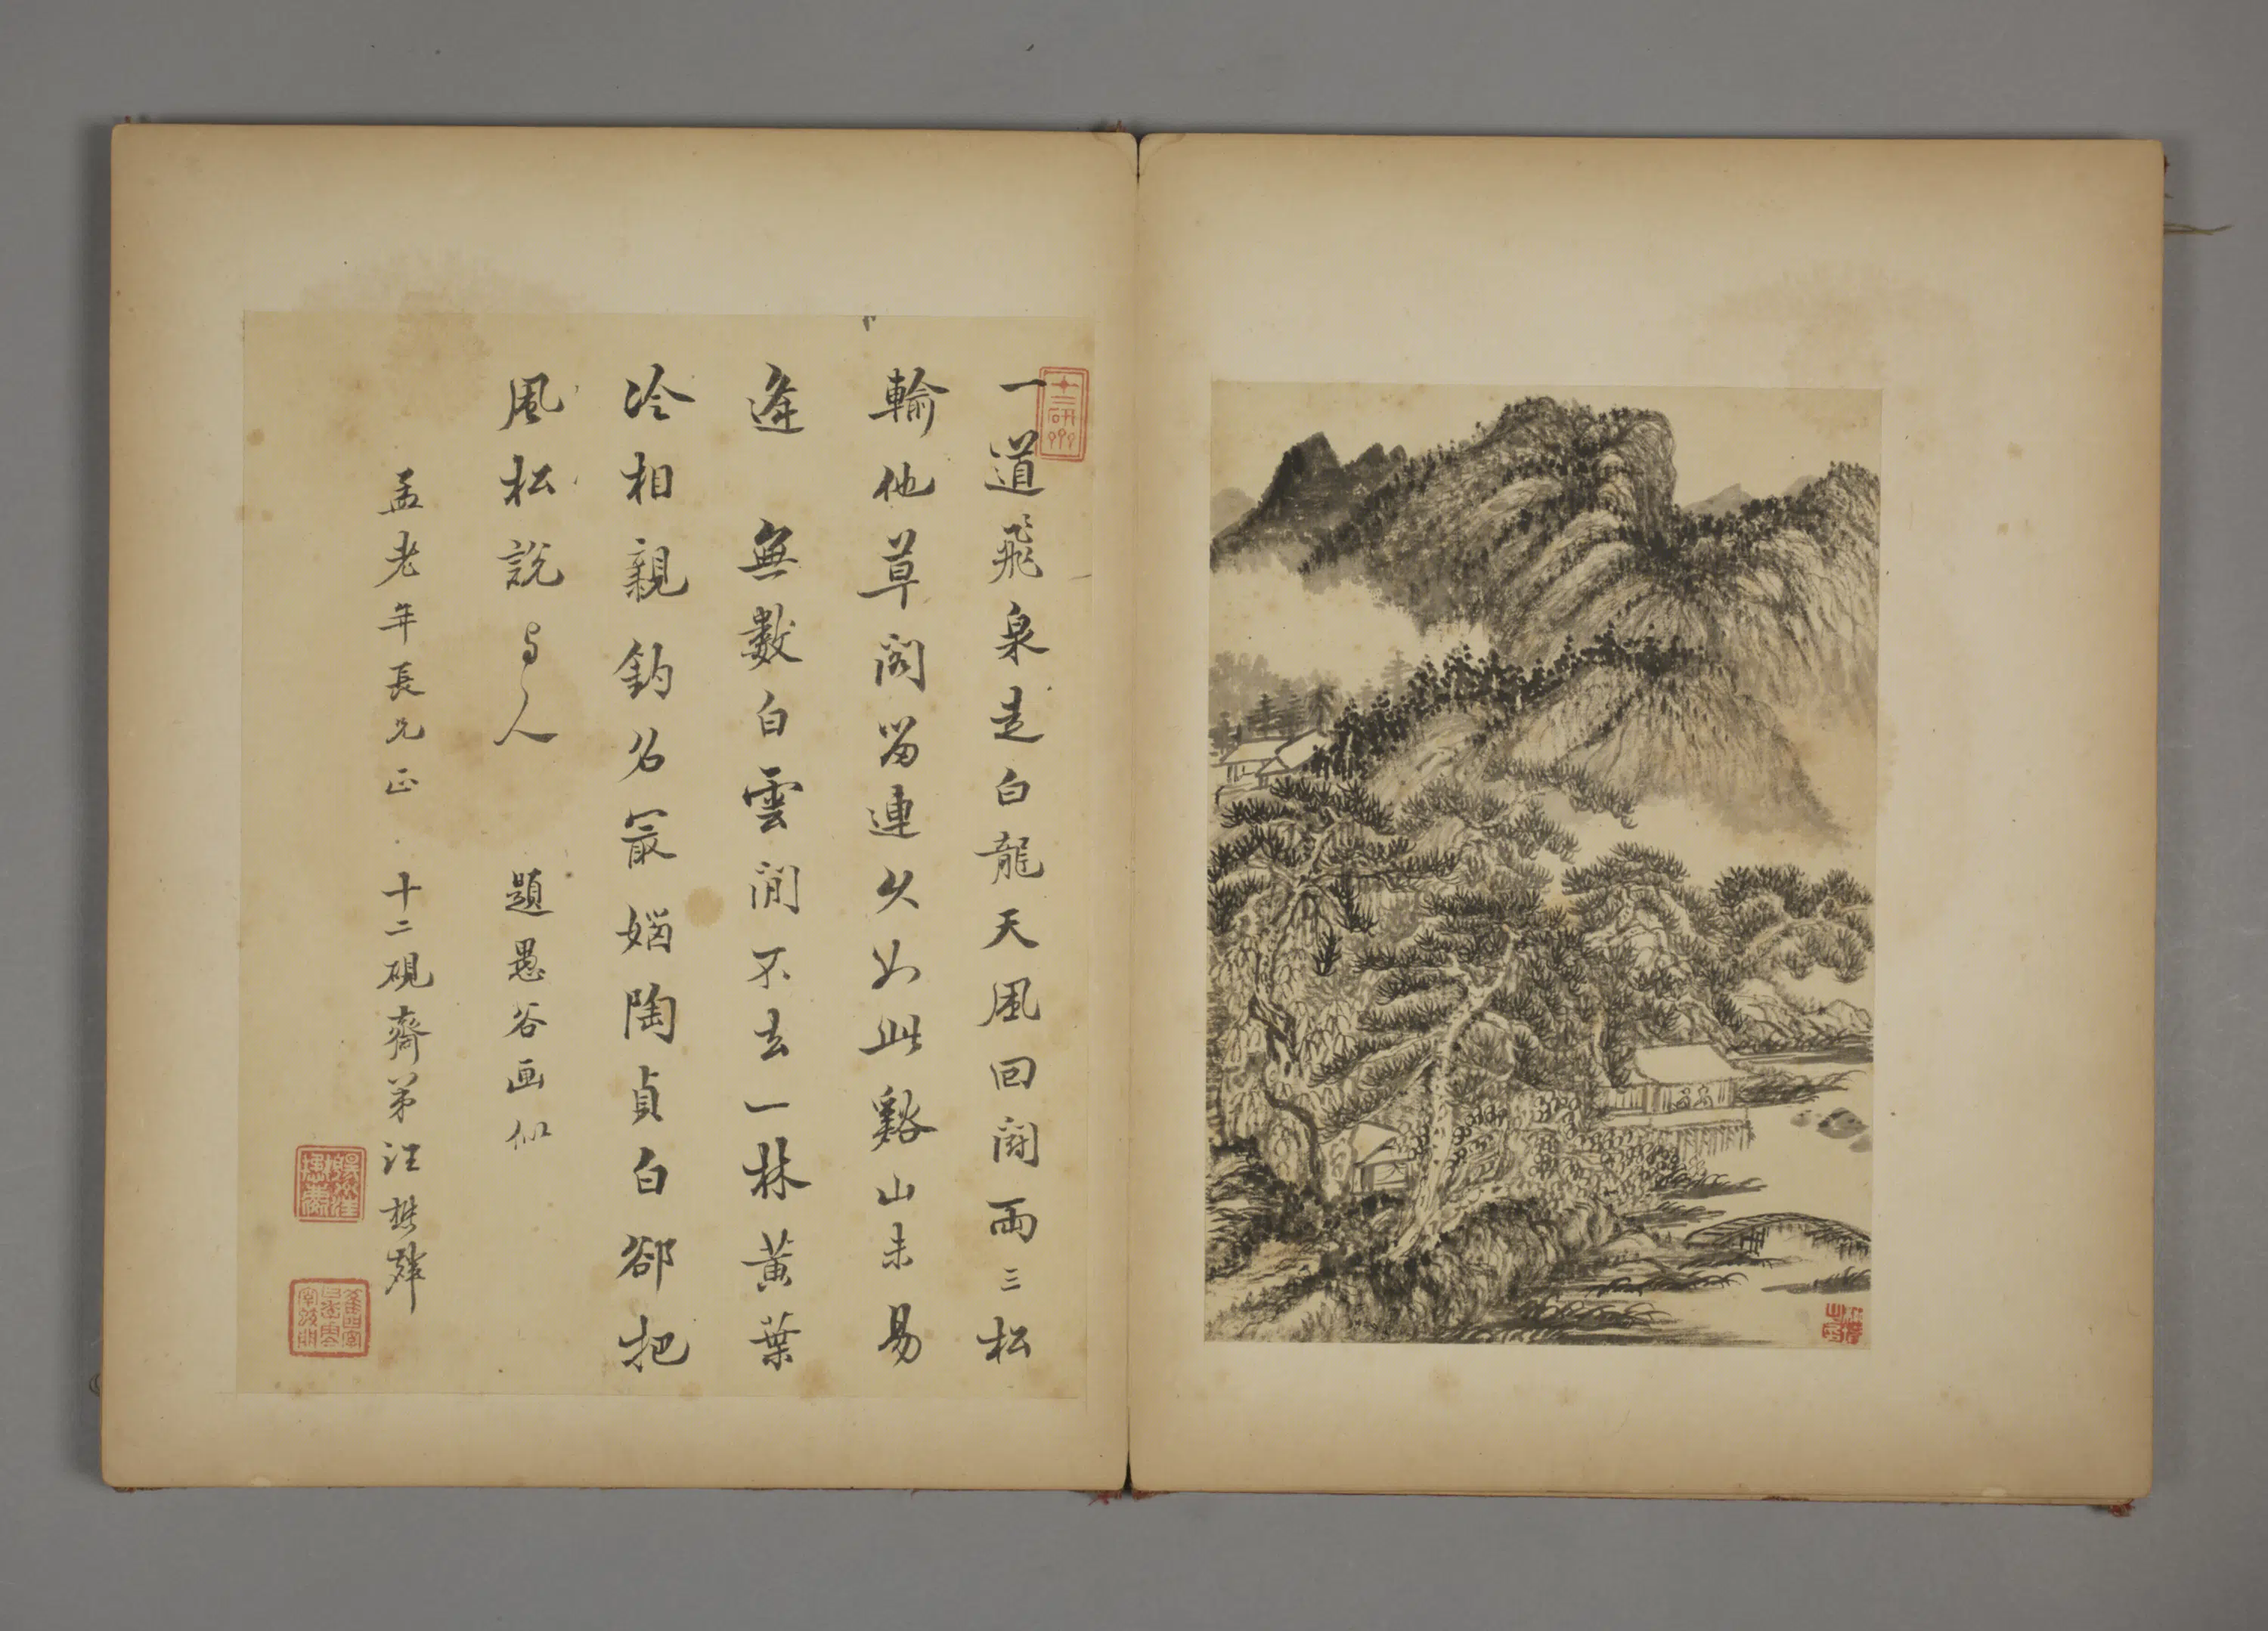 一道飛泉走白龍天風回閣兩三松
輸他草閣留連久如此谿山未易
逢　無數白雲閒不去一林黃葉
冷相親鈎名最嬾陶貞白卻把
風松說与人
題愚谷画似
孟老年長兄正　十二硯齋弟汪懋麟
十二研